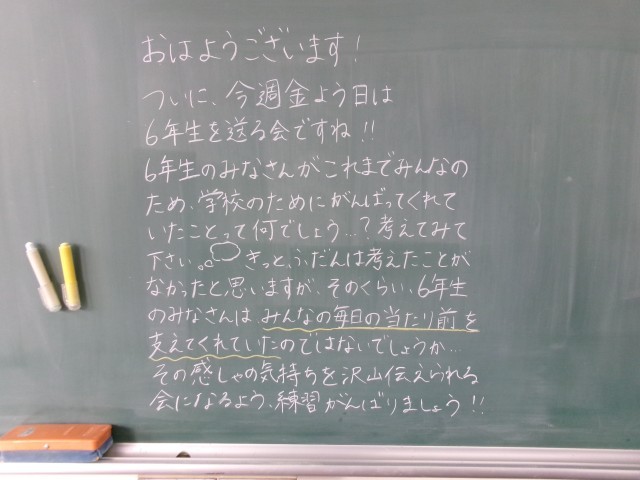 おはようございます!
ついに、今週金よう日は
6年生を送る会ですね!!
6年生のみなさんがこれまでみんなの
ため、学校のためにがんばってくれて
いたことって何でしょう…?考えてみて
下さい。きっと、ふだんは考えたことが
なかったと思いますが、そのくらい、6年生
のみなさんは、みんなの毎日の当たり前を
支えてくれていたのではないでしょうか…
その感しゃの気持ちを沢山伝えられる
会になるよう、練習がんばりましょう!!